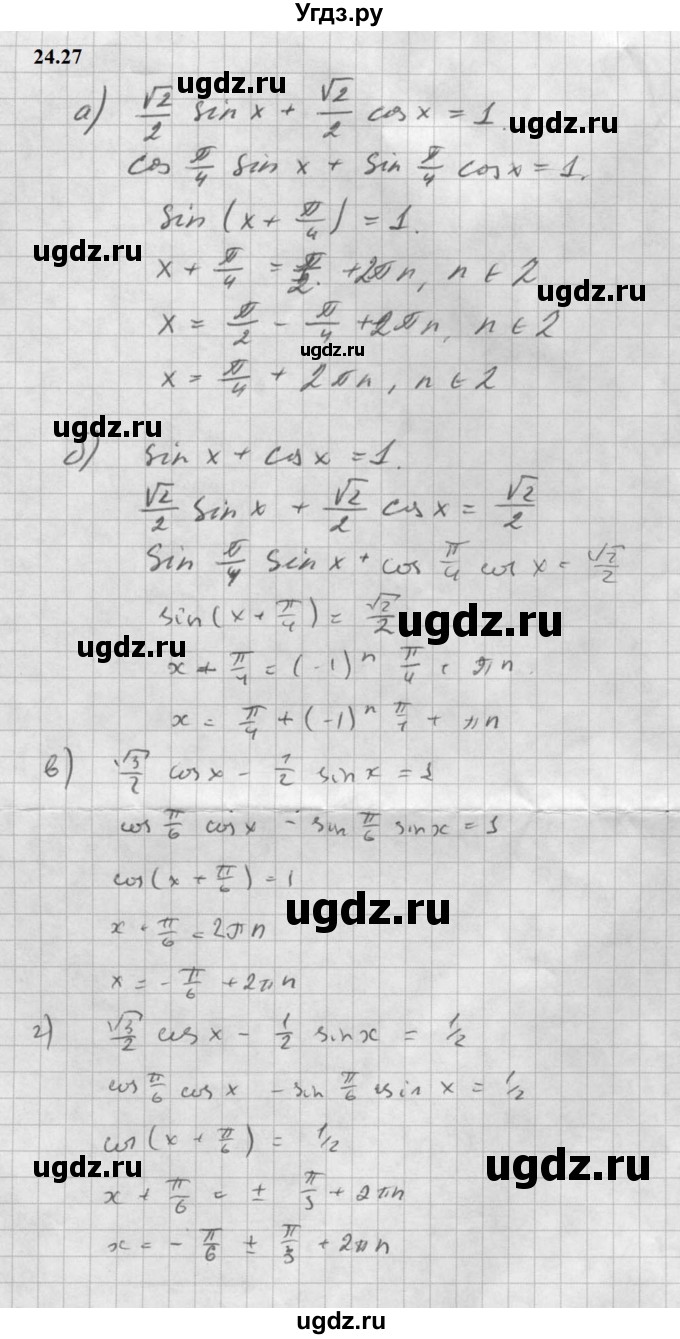 Угдз.ру
24.27
ugdz.ru
а) √2/2 sin x + √2/2 cos x = 1.
ugdz.ru
cos π/4 sin x + sin π/4 cos x = 1.
sin (x + π/4) = 1.
ugdz.ru
x + π/4 = π/2 + 2πn, n ∈ Z
ugdz.ru
x = π/2 - π/4 + 2πn, n ∈ Z
ugdz.ru
x = π/4 + 2πn, n ∈ Z
ugdz.ru
б) sin x + cos x = 1.
√2/2 sin x + √2/2 cos x = √2/2
sin π/4 sin x + cos π/4 cos x = √2/2
sin (x + π/4) = √2/2
ugdz.ru
ugdz.ru
x + π/4 = (-1)ⁿ π/4 + πn.
x = π/4 + (-1)ⁿ π/4 + πn
в) √3/2 cos x - 1/2 sin x = 1
cos π/6 cos x - sin π/6 sin x = 1
cos (x + π/6) = 1
ugdz.ru
x + π/6 = 2πn
x = - π/6 + 2πn
г) √3/2 cos x - 1/2 sin x = 1/2
cos π/6 cos x - sin π/6 sin x = 1/2
cos (x + π/6) = 1/2
ugdz.ru
ugdz.ru
x + π/6 = ± π/3 + 2πn
x = - π/6 ± π/3 + 2πn
ugdz.ru